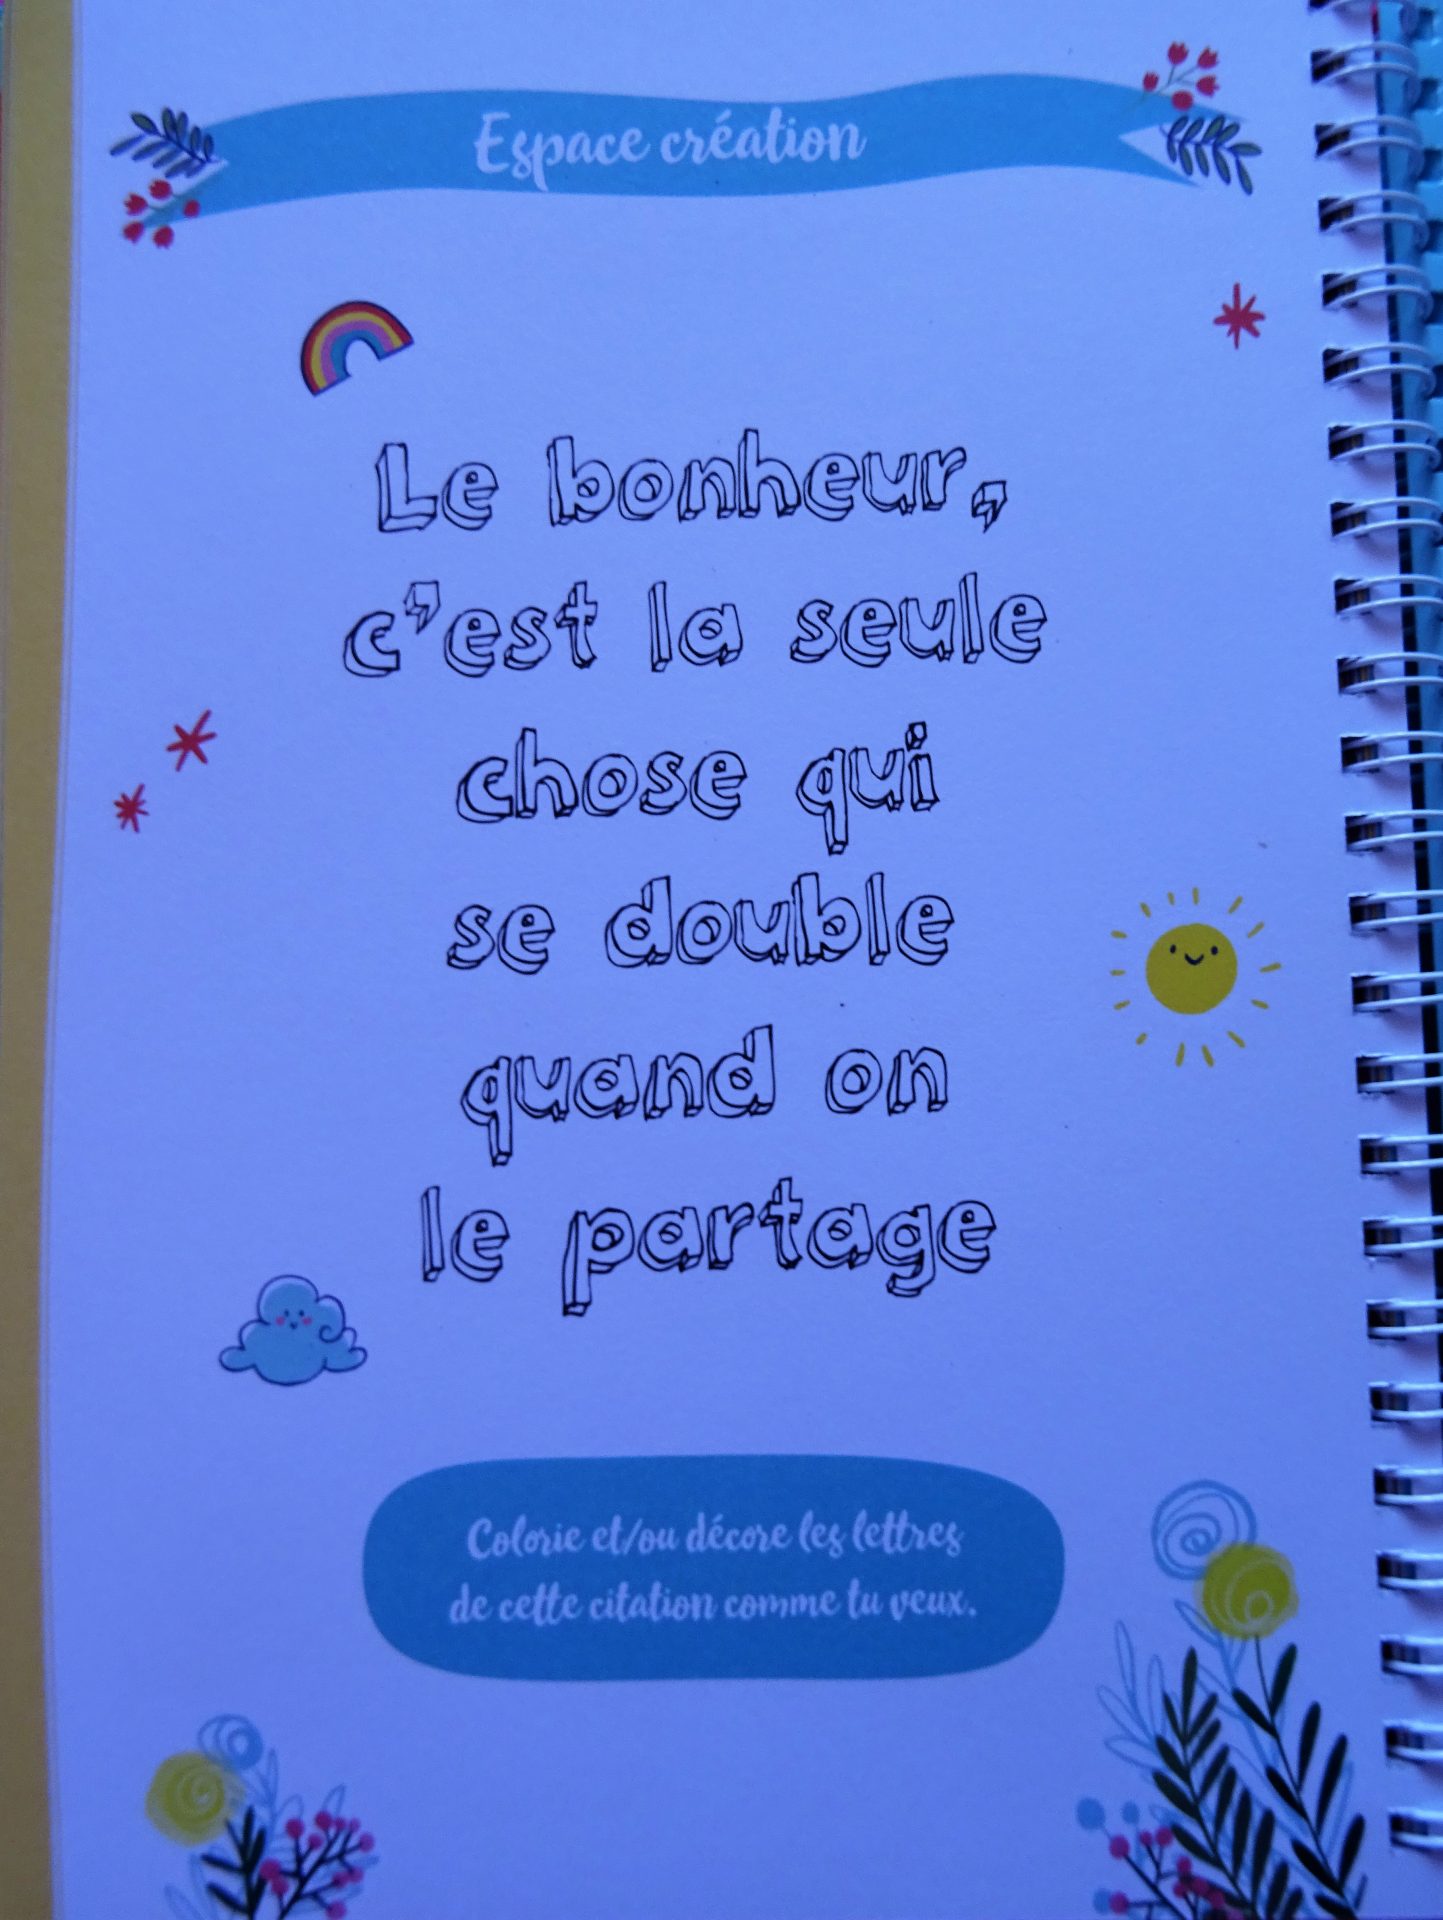 Espace création
Le bonheur,
c'est la seule
chose qui
se double
quand on
le partage
Colorie et/ou décore les lettres
de cette citation comme tu veux.